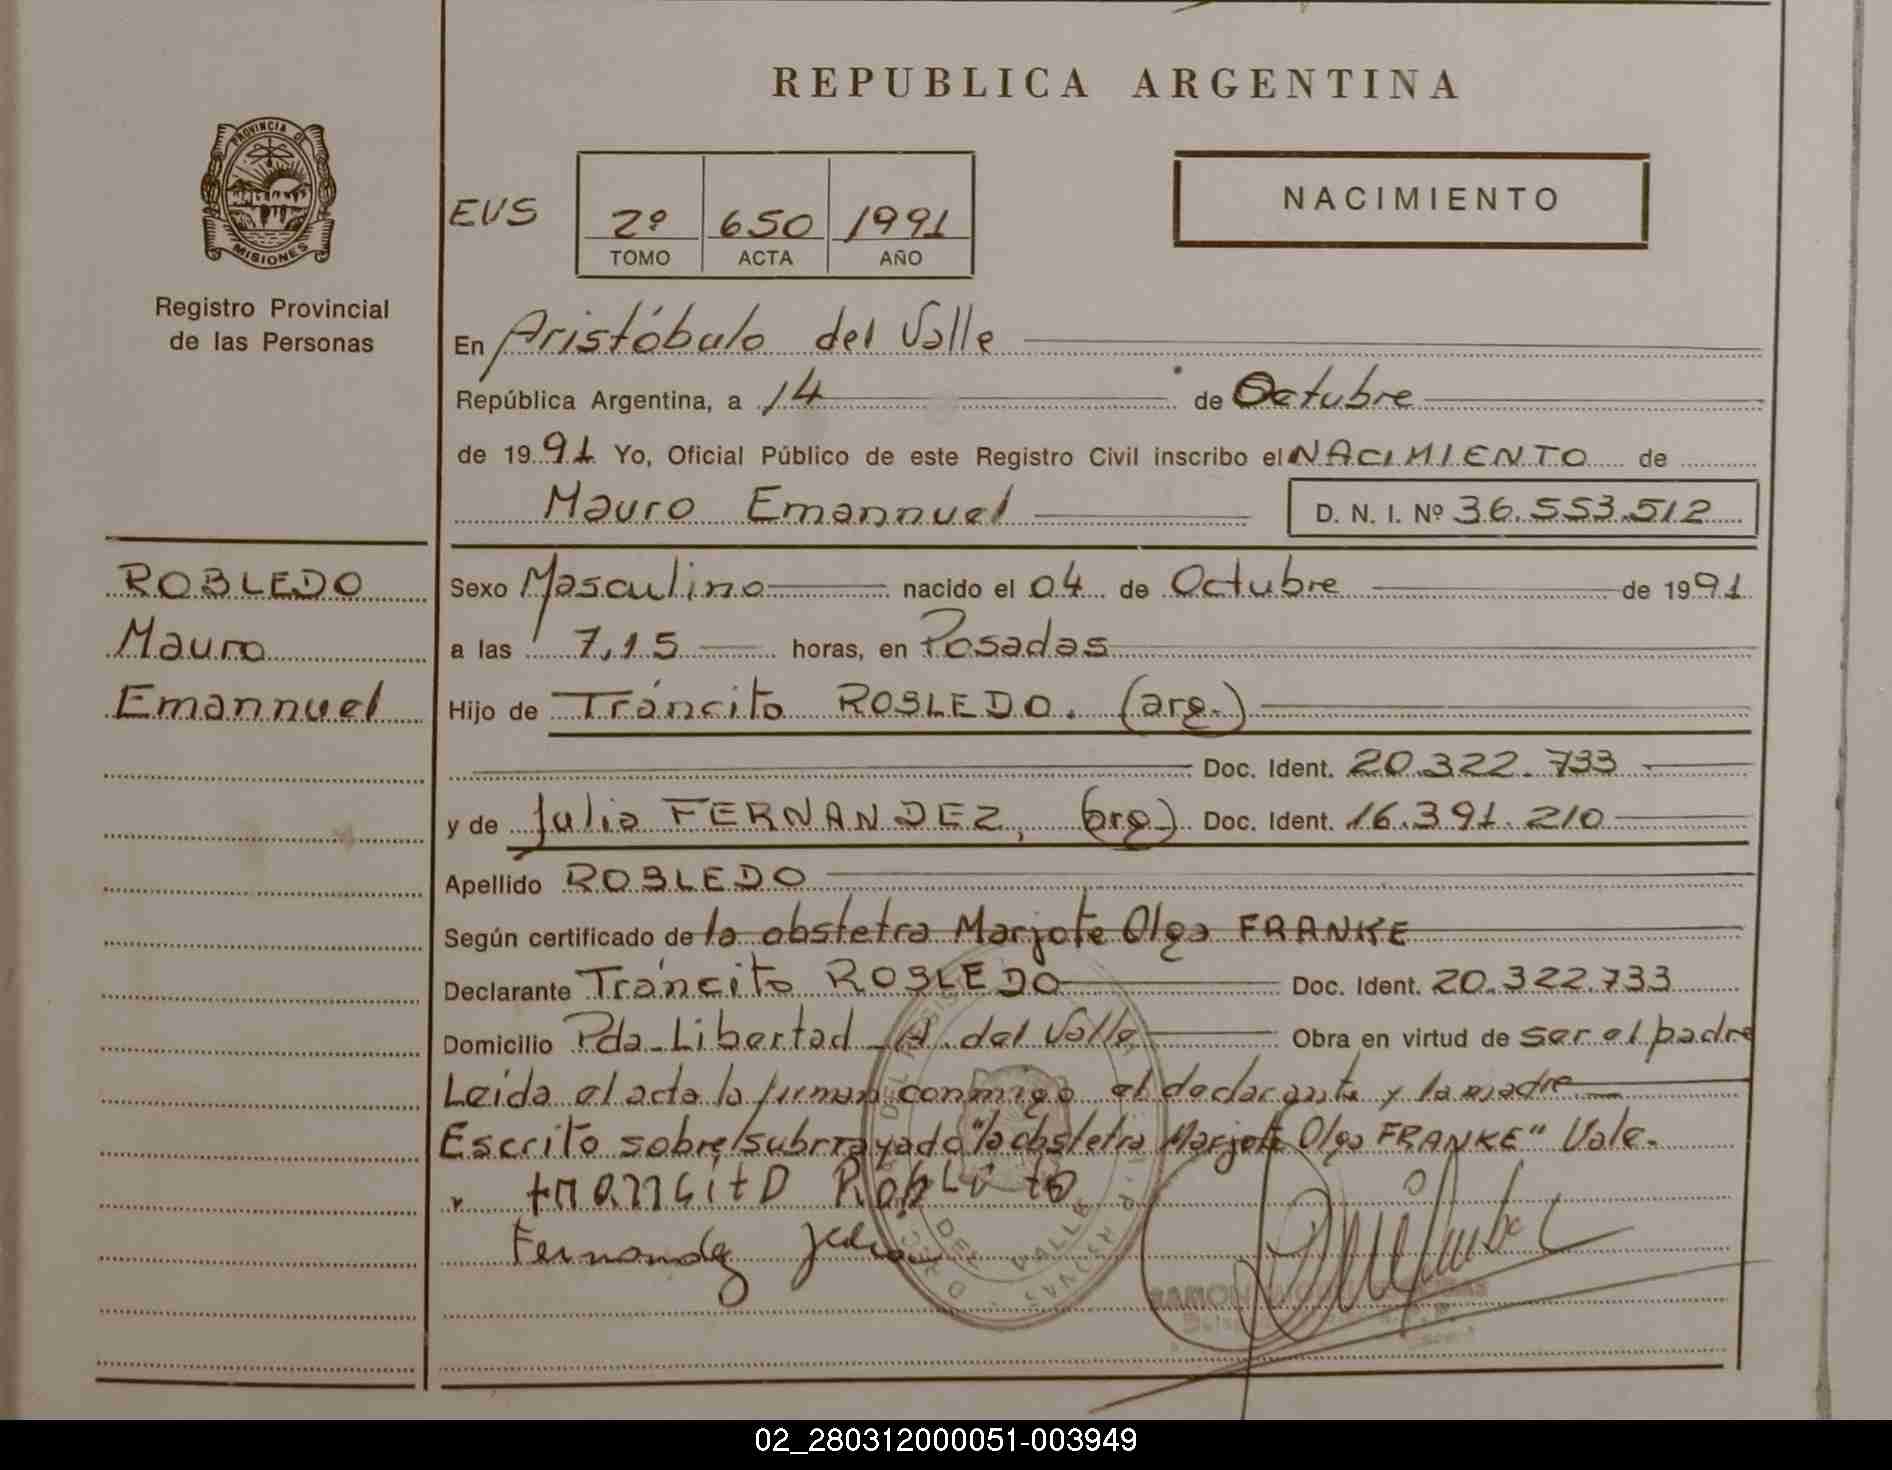 REPUBLICA ARGENTINA
PROVINCIA DE
MISIONES
Registro Provincial
de las Personas
EVS
2º 650 1991
TOMO ACTA AÑO
NACIMIENTO
En Aristóbulo del Valle
República Argentina, a 14 de Octubre
de 1991 Yo, Oficial Público de este Registro Civil inscribo el NACIMIENTO de
Mauro Emannuel D. N. I. Nº 36.553.512
ROBLEDO
Mauro
Emannuel
Sexo Masculino nacido el 04 de Octubre de 1991
a las 7,15 horas, en Posadas
Hijo de Tráncito ROBLEDO. (arg.)
Doc. Ident. 20.322.733
y de Julia FERNANDEZ, (arg.) Doc. Ident. 16.391.210
Apellido ROBLEDO
Según certificado de la obstetra Marjote Olga FRANKE
Declarante Tráncito ROBLEDO Doc. Ident. 20.322.733
Domicilio Pda. Libertad - A. del Valle Obra en virtud de ser el padre
Leída el acta la firman conmigo el declarante y la madre
Escrito sobre/subrrayado "la obstetra Marjote Olga FRANKE" Vale.
Fernandez
DEL VALLE
02_280312000051-003949